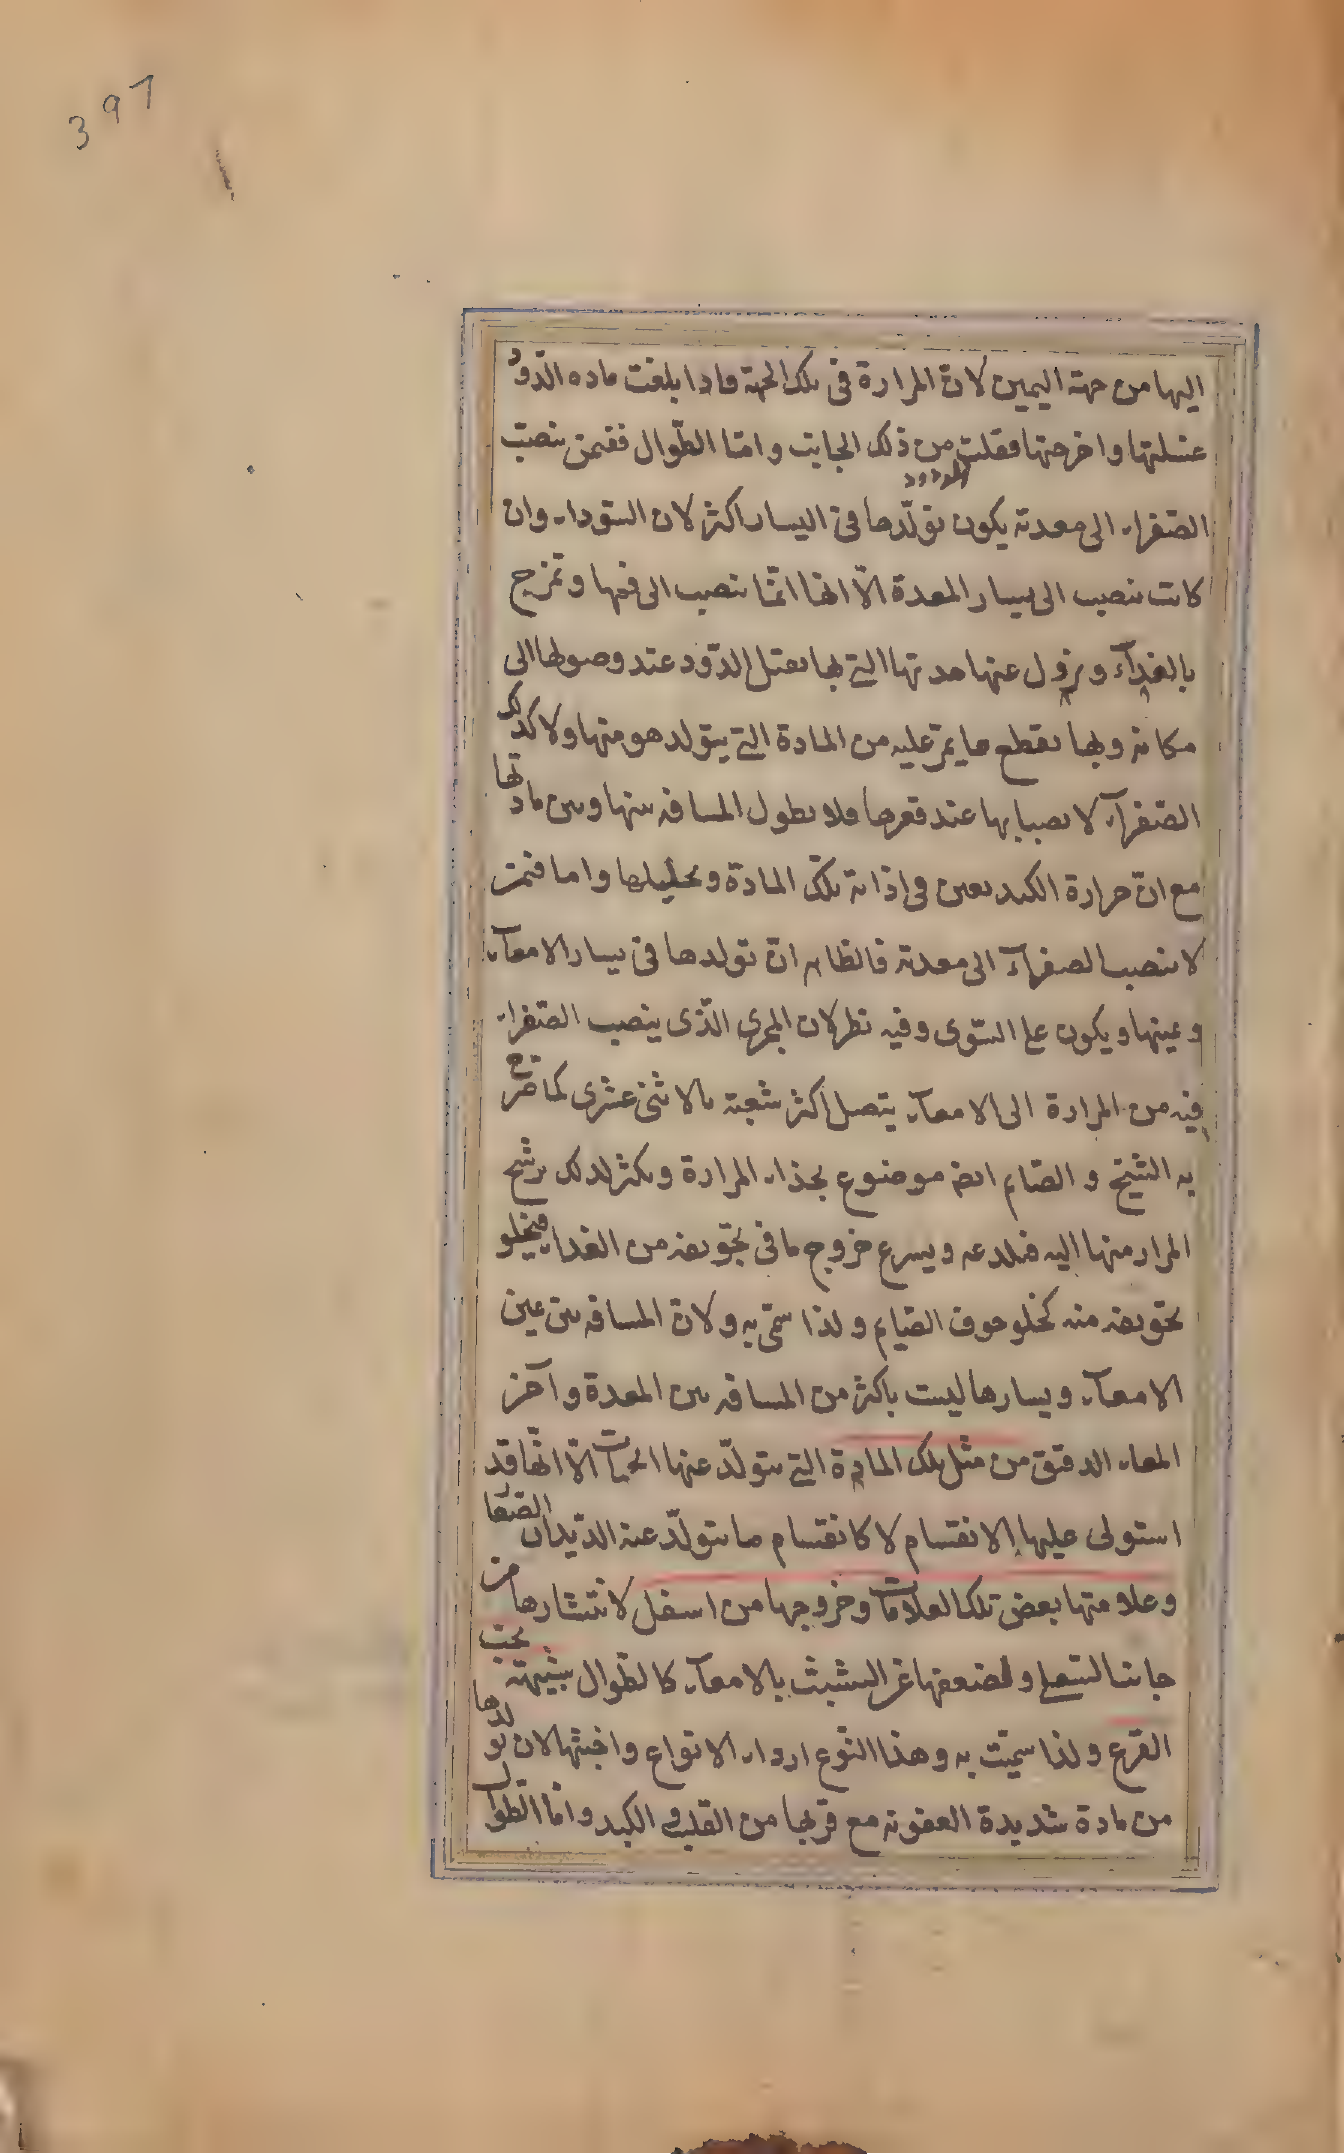 397
اليها من جهة اليمين لان المرارة فى تلك الجهة فاذا بلغت ماده الدّود
غسلتها واخرجتها فقلت من ذلك الجانب وامّا الطّوال ففيمن ينصبّ
الصّفراء الى معدته يكون تولّدها فى اليسار اكثر لان السّوداء وان
كانت تنصب الى يسار المعدة الّا انها انّما تنصب الى فمها وتمزج
بالغذآء ويزول عنها حدتها التى بها يقتل الدّود عند وصولها الى
مكانه وبها يقطع ما يمرّ عليه من المادة التى يتولد هو منها ولا كذلك
الصّفرآء لانصبابها عند قعرها فلا يطول المسافه بينها وبين مادتها
مع انّ حرارة الكبد يعين فى اذابة تلك المادة وتحليلها واما فيمن
لا ينصب الصفرآء الى معدته فالظاهر انّ تولدها فى يسار الامعآء
ويمينها ويكون على السّوى وفيه نظر لان المجرى الّذى ينصب الصّفراء
فيه من المرارة الى الامعآء يتصل اكثر شعبه بالاثنى عشرى كما صرّح
به الشّيخ و الصّايم ايضا موضوع بحذاء المرارة ويكثر لذلك ترشح
المرار منها اليه فيلدعه ويسرع خروج ما فى تجويفه من الغذاء فيخلو
تجويفه منه كخلو جوف الصّيام ولذا سمّى به ولانّ المسافه بين يمين
الامعآء ويسارها ليست باكثر من المسافه بين المعدة وآخر
المعاء الدقيق من مثل تلك المادة التى يتولّد عنها الحيّات الّا انّها قد
استولى عليها الانقسام لا كانقسام ما يتولّد عنه الدّيدان الصّغار
وعلامتها بعض تلك العلامات وخروجها من اسفل لانتشارها من
جانب السّفلى ولضعفها عن التشبث بالامعآء كالطّوال شبيهة بحبّ
القرع ولذا سمّيت به وهذا النّوع اردا الانواع واخبثها لان تولدها
من مادة شديدة العفونه مع قربها من القلب و الكبد وامّا الطّوال